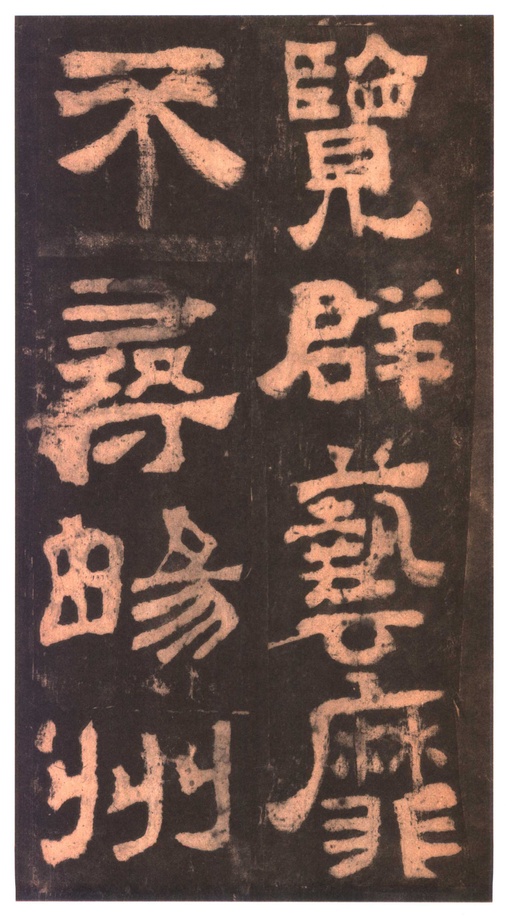 覽群藝靡
不尋畼州